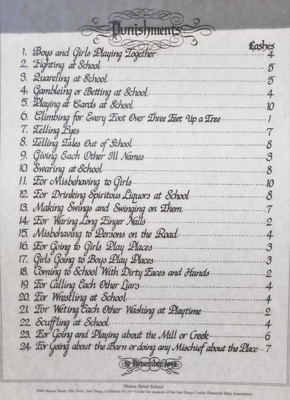 Punishments
Lashes
1. Boys and Girls Playing Together 4
2. Fighting at School 5
3. Quareling at School 5
4. Gambleing or Betting at School 4
5. Playing at Cards at School 10
6. Climbing for Every Foot Over Three Feet Up a Tree 1
7. Telling Lyes 7
8. Telling Tales Out of School 8
9. Giving Each Other Ill Names 3
10. Swaring at School 8
11. For Misbehaving to Girls 10
12. For Drinking Spiritous Liquors at School 8
13. Making Swings and Swinging on Them 7
14. For Waring Long Finger Nails 2
15. Misbehaving to Persons on the Road 4
16. For Going to Girls Play Places 3
17. Girls Going to Boys Play Places 3
18. Coming to School With Dirty Faces and Hands 2
19. For Calling Each Other Liars 4
20. For Wrestling at School 4
21. For Weting Each Other Washing at Playtime 2
22. Scuffling at School 4
23. For Going and Playing about the Mill or Creek 6
24. For Going about the Barn or doing any Mischief about the Place 7
November
Mason Street School
Mason Street, Old Town, San Diego, California 92110 • Under the auspices of the San Diego County Historical Days Association